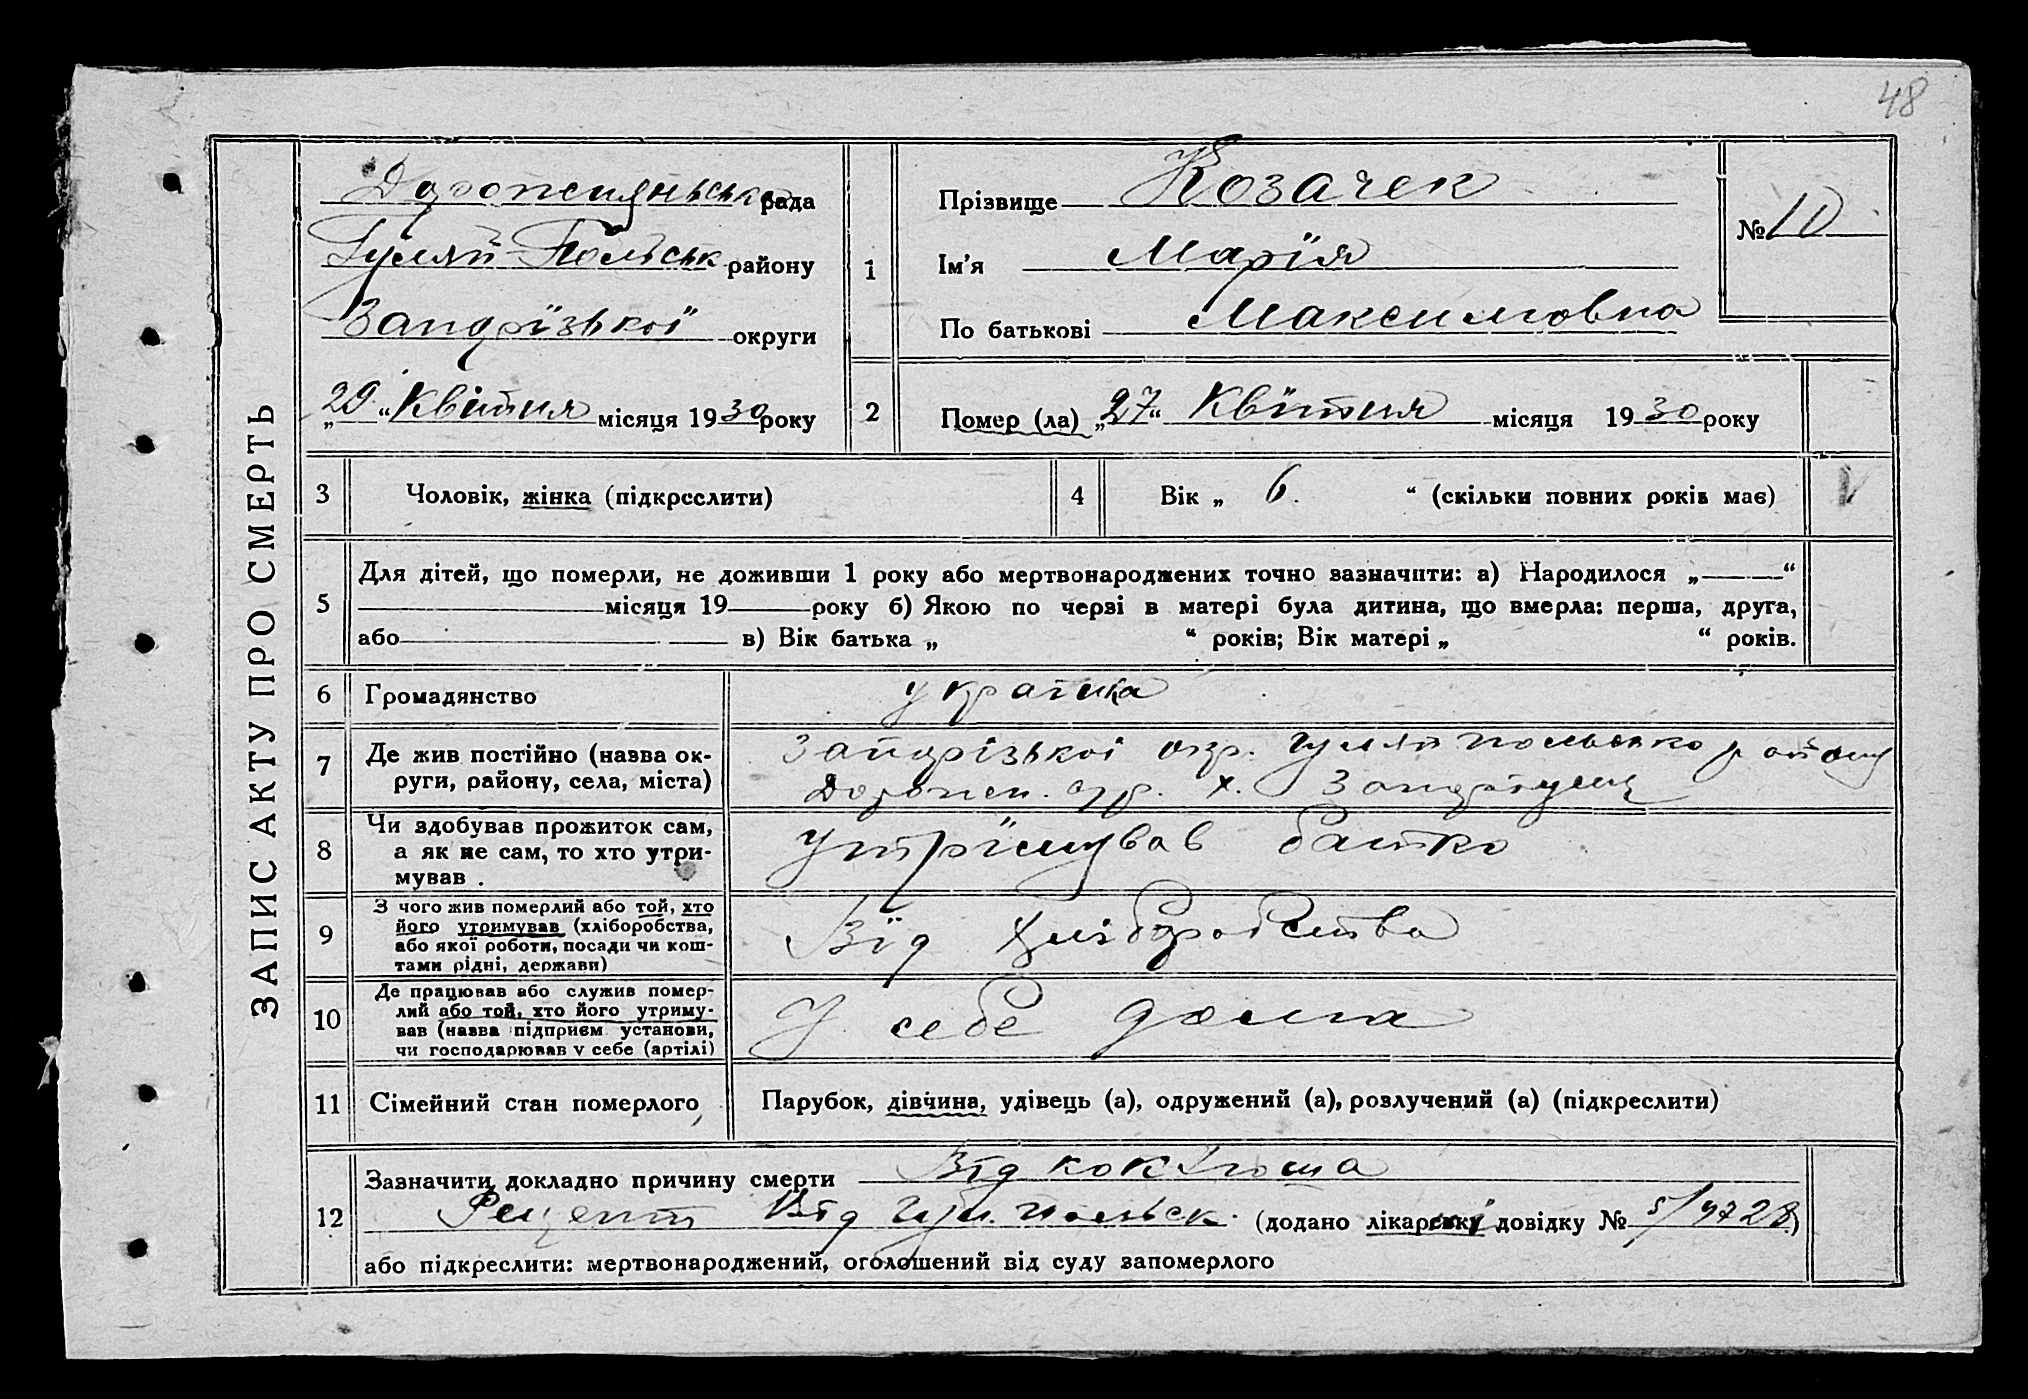 48
ЗАПИС АКТУ ПРО СМЕРТЬ
Дорожняньська рада
Гуляй-Польськ району
Запорїзької округи
„29“ Квітня місяця 1930 року
1
Прізвище Козачек
Ім'я Марїя
По батькові Максимовна
№ 10
2
Помер (ла) „27“ Квїтня місяця 1930 року
3
Чоловік, жінка (підкреслити)
4
Вік „ 6. “ (скільки повних років має)
V
5
Для дітей, що померли, не доживши 1 року або мертвонароджених точно зазначити: а) Народилося „——“
місяця 19 року б) Якою по черві в матері була дитина, що вмерла: перша, друга,
або в) Вік батька „ “ років; Вік матері „ “ років.
6
Громадянство
украінка
7
Де жив постійно (назва ок-
руги, району, села, міста)
Запорізькоі окр. Гуляй польсько району
Дорожен. с/р. х.
8
Чи здобував прожиток сам,
а як не сам, то хто утри-
мував.
Утрїмував батко
9
З чого жив померлий або той, хто
його утримував (хліборобства,
або якої роботи, посади чи кош-
тами рідні, держави)
Вїд Хлїборобства
10
Де працював або служив помер-
лий або той, хто його утриму-
вав (назва підприєм установи,
чи господарював у себе (артілі)
У себе дома
11
Сімейний стан померлого
Парубок, дівчина, удівець (а), одружений (а), розлучений (а) (підкреслити)
12
Зазначити докладно причину смерти Вїд коклюша
Рецепт Вїд Гул. польск. (додано лікарські довідку № 5/IV 28)
або підкреслити: мертвонароджений, оголошений від суду запомерлого